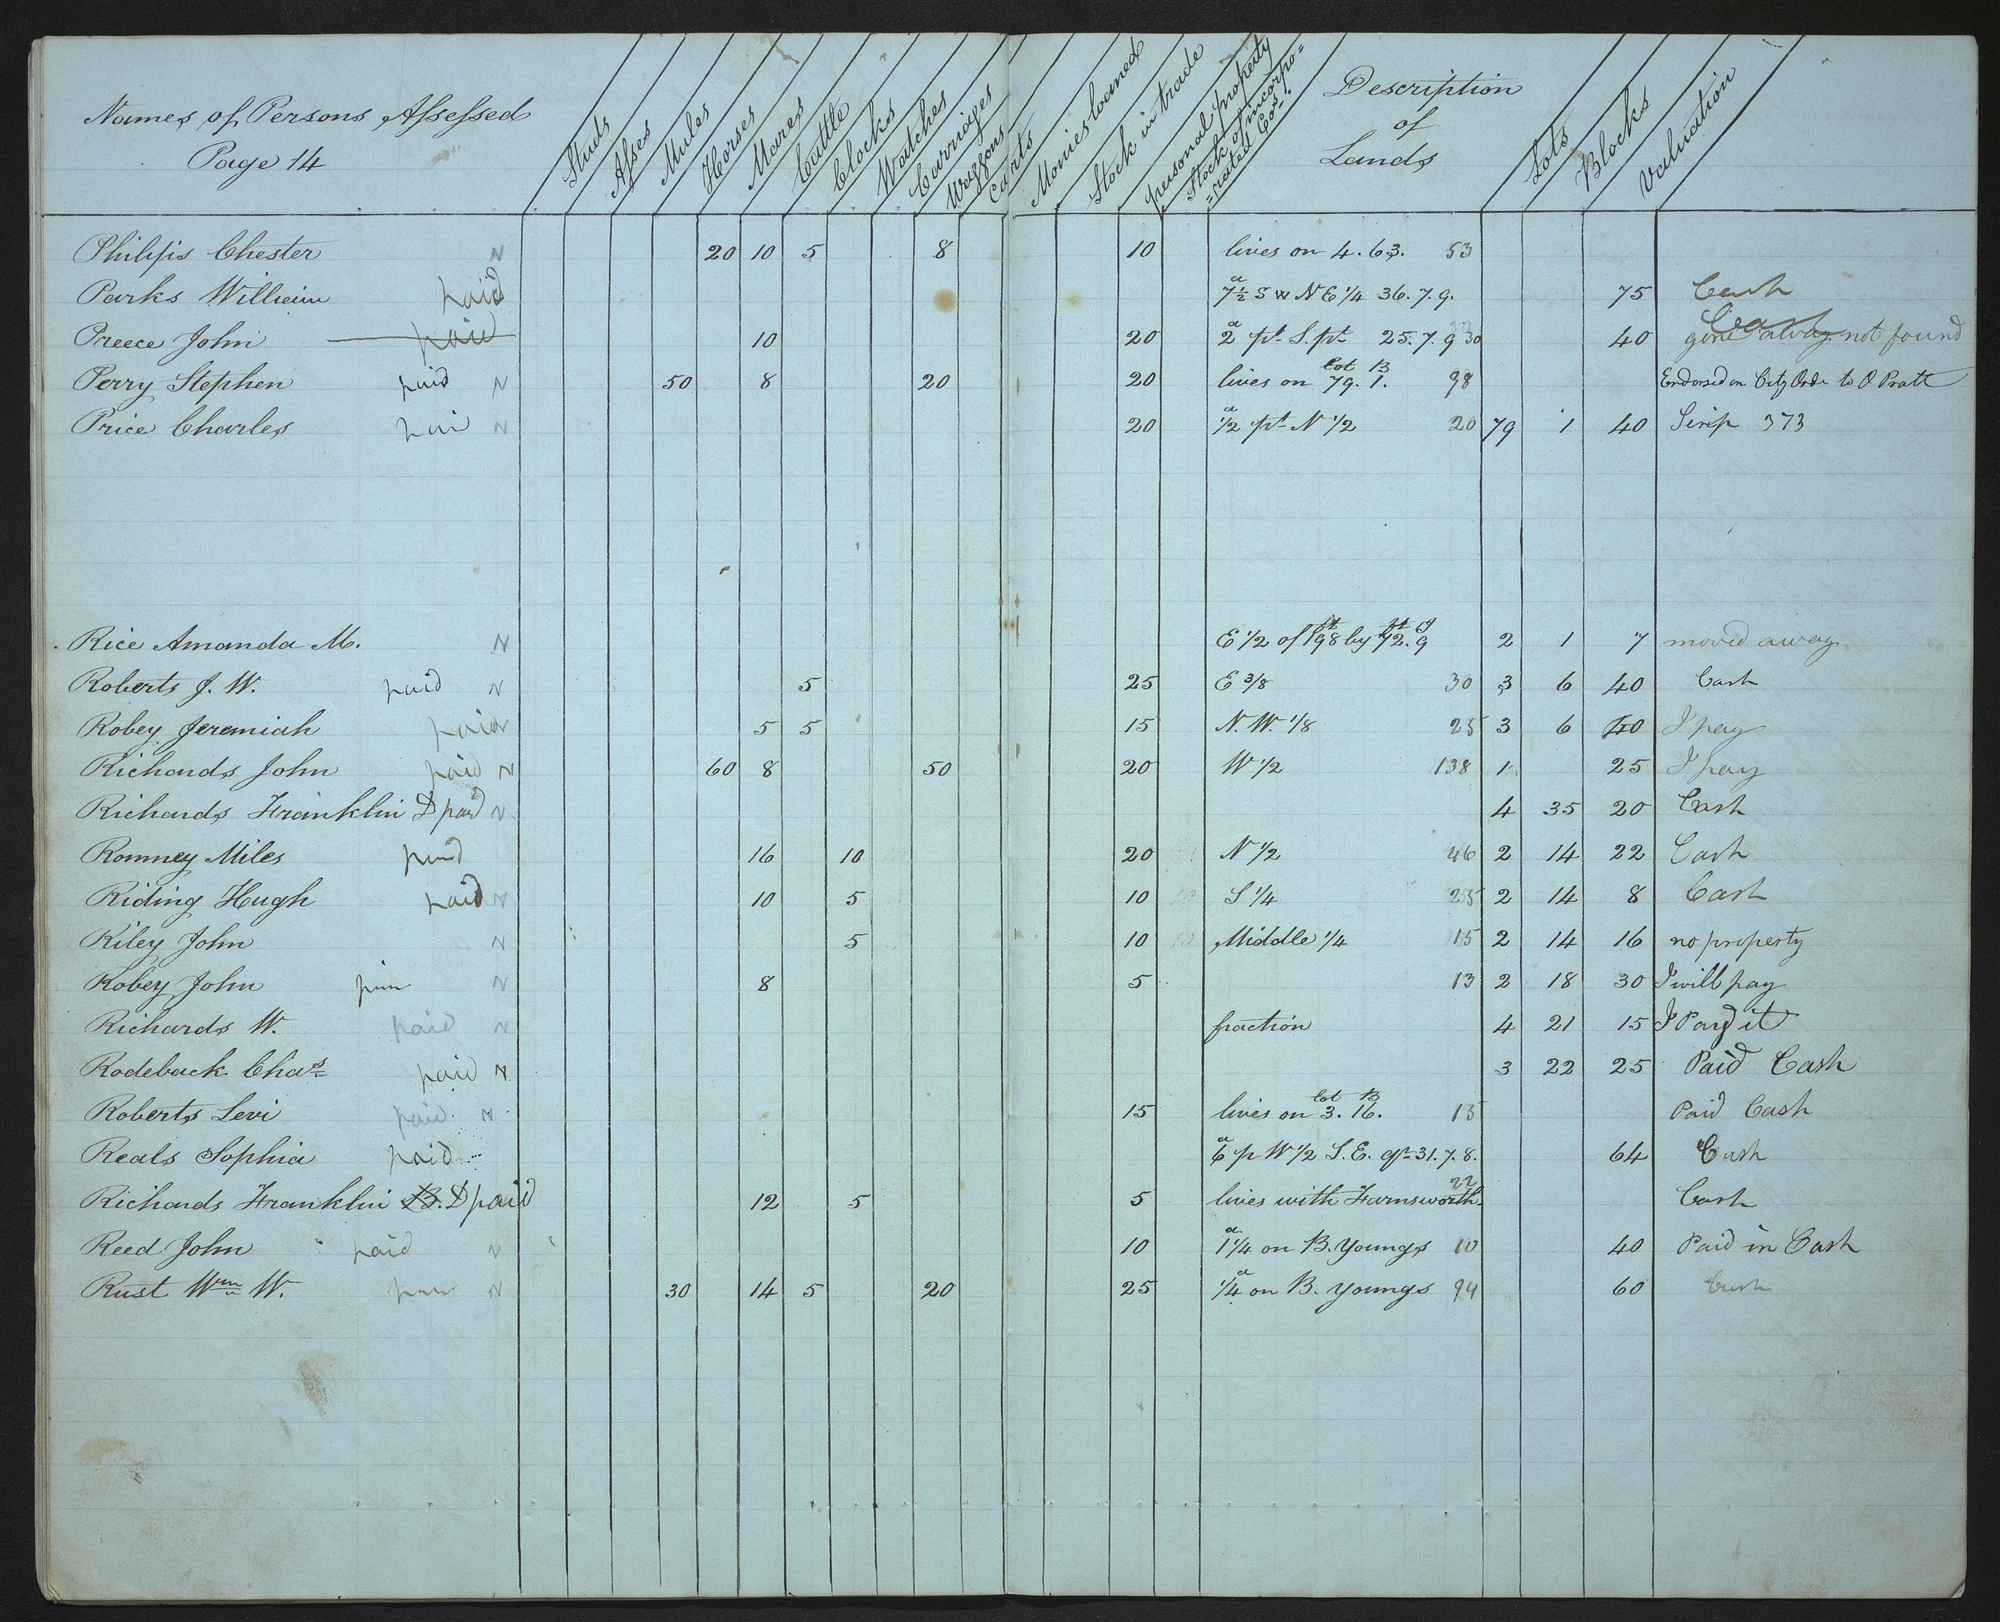 Names of Persons Assessed
Page 14
Studs
Asses
Mules
Horses
Mares
Cattle
Clocks
Watches
Carriages
Waggons
Carts
Monies loaned
Stock in trade
personal property
Stock of incorpo=
=rated Cos.
Description
of
Lands
Lots
Blocks
Valuation
Philips Chester N 20 10 5 8 10 lives on 4. 63. 53
Parks William paid a 7½ S W N E ¼ 36. 7. 9. 75 Cash
Preece John paid 10 20 a 2 pt S. pt 25. 7. 9 30 40 Cash gone away not found
Perry Stephen paid N 50 8 20 20 lives on lot 79. B 1. 98 Endorsed on City Orde to O Pratt
Price Charles paid N 20 a ½ pt N ½ 20 79 1 40 Scrip 373
Rice Amanda M. N E ½ of 198 by 72. 9 2 1 7 moved away
Roberts J. W. paid N 5 25 E 3/8 30 3 6 40 Cash
Robey Jeremiah paid N 5 5 15 N. W. 1/8 25 3 6 40 I pay
Richards John paid N 60 8 50 20 W ½ 138 1 25 I pay
Richards Franklin D paid N 4 35 20 Cash
Romney Miles paid 16 10 20 N ½ 46 2 14 22 Cash
Riding Hugh paid N 10 5 10 S ¼ 25 2 14 8 Cash
Riley John N 5 10 Middle ¼ 15 2 14 16 no property
Robey John N 8 5 13 2 18 30 I will pay
Richards W. paid N fraction 4 21 15 I Pay it
Rodeback Chas paid N 3 22 25 Paid Cash
Roberts Levi paid N 15 lives on lot 3. B 16. 15 Paid Cash
Reals Sophia paid a 6 p W ½ S. E. qr 31. 7. 8. 64 Cash
Richards Franklin B. D paid 12 5 5 lives with Farnsworth 22 Cash
Reed John paid N 10 a 1¼ on B. Youngs 10 40 Paid in Cash
Rust Wm W. N 30 14 5 20 25 a ¼ on B. Youngs 94 60 Cash